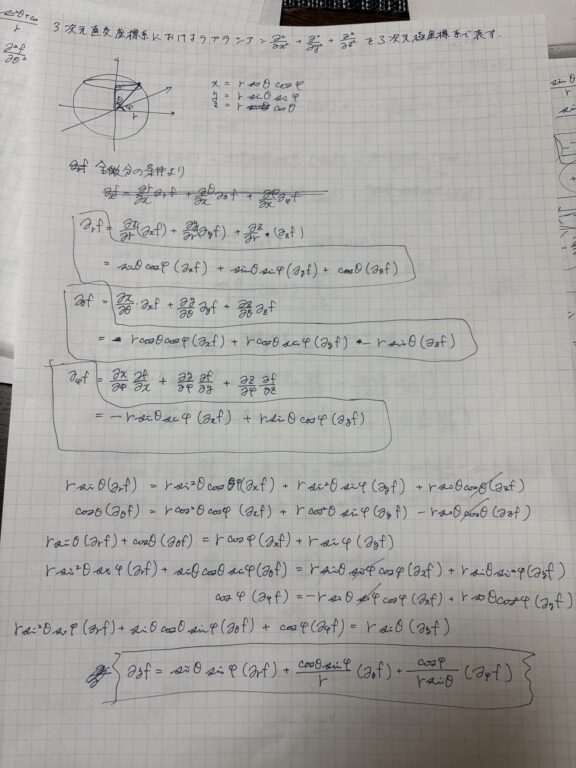 3次元直交座標系におけるラプラシアン ∂²/∂x² + ∂²/∂y² + ∂²/∂z² を3次元極座標系で表す.
∂²f/∂θ²
x = r sinθ cosφ
y = r sinθ sinφ
z = r cosθ
全微分の条件より
∂f/∂x = ∂r/∂x ∂rf + ∂θ/∂x ∂θf + ∂φ/∂x ∂φf
∂rf = ∂x/∂r (∂xf) + ∂y/∂r (∂yf) + ∂z/∂r (∂zf)
= sinθ cosφ (∂xf) + sinθ sinφ (∂yf) + cosθ (∂zf)
∂θf = ∂x/∂θ · ∂xf + ∂y/∂θ ∂yf + ∂z/∂θ ∂zf
= r cosθ cosφ (∂xf) + r cosθ sinφ (∂yf) - r sinθ (∂zf)
∂φf = ∂x/∂φ ∂f/∂x + ∂y/∂φ ∂f/∂y + ∂z/∂φ ∂f/∂z
= -r sinθ sinφ (∂xf) + r sinθ cosφ (∂yf)
r sinθ (∂rf) = r sin²θ cosφ (∂xf) + r sin²θ sinφ (∂yf) + r sinθ cosθ (∂zf)
cosθ (∂θf) = r cos²θ cosφ (∂xf) + r cos²θ sinφ (∂yf) - r sinθ cosθ (∂zf)
r sinθ (∂rf) + cosθ (∂θf) = r cosφ (∂xf) + r sinφ (∂yf)
r sin²θ sinφ (∂rf) + sinθ cosθ sinφ (∂θf) = r sinθ sinφ cosφ (∂xf) + r sinθ sin²φ (∂yf)
cosφ (∂φf) = -r sinθ sinφ cosφ (∂xf) + r sinθ cos²φ (∂yf)
r sin²θ sinφ (∂rf) + sinθ cosθ sinφ (∂θf) + cosφ (∂φf) = r sinθ (∂yf)
∂yf = sinθ sinφ (∂rf) + cosθ sinφ/r (∂θf) + cosφ/r sinθ (∂φf)